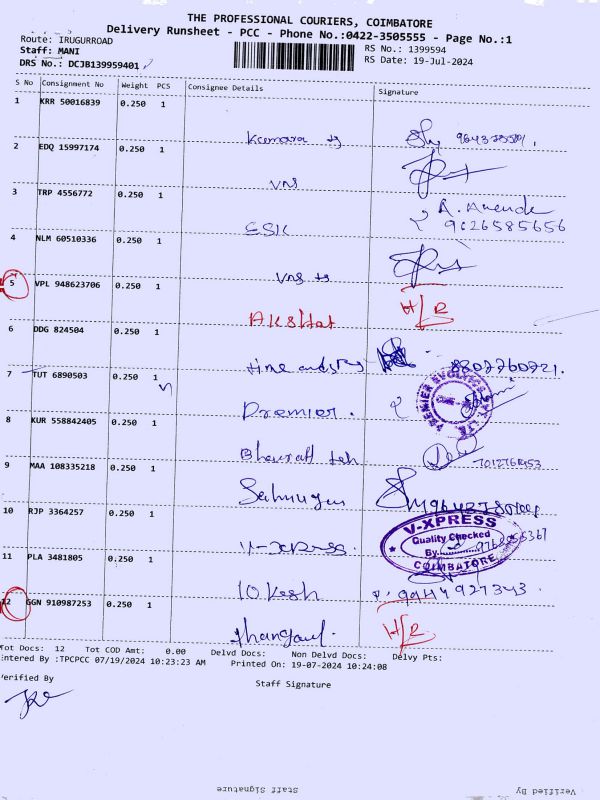 THE PROFESSIONAL COURIERS, COIMBATORE
Delivery Runsheet - PCC - Phone No.:0422-3505555 - Page No.:1
Route: IRUGURROAD
RS No.: 1399594
Staff: MANI
RS Date: 19-Jul-2024
DRS No.: DCJB139959401
S No Consignment No Weight PCS Consignee Details Signature
1 KRR 50016839 0.250 1
Kumara
2 EDQ 15997174 0.250 1
vns
3 TRP 4556772 0.250 1
9026585656
ESK
4 NLM 60510336 0.250 1
vns
5 VPL 948623706 0.250 1
Akshat H/R
6 DDG 824504 0.250 1
time
7 TUT 6890503 0.250 1
Premier.
8 KUR 558842405 0.250 1
Bharat teh
9 MAA 108335218 0.250 1
10 RJP 3364257 0.250 1
V-XPRESS
Quality Checked
By
COIMBATORE
V-xpress.
11 PLA 3481805 0.250 1
lokesh
12 GGN 910987253 0.250 1
H/R
Tot Docs: 12 Tot COD Amt: 0.00 Delvd Docs: Non Delvd Docs: Delvy Pts:
Entered By :TPCPCC 07/19/2024 10:23:23 AM Printed On: 19-07-2024 10:24:08
Verified By
Staff Signature
Staff Signature
Verified By